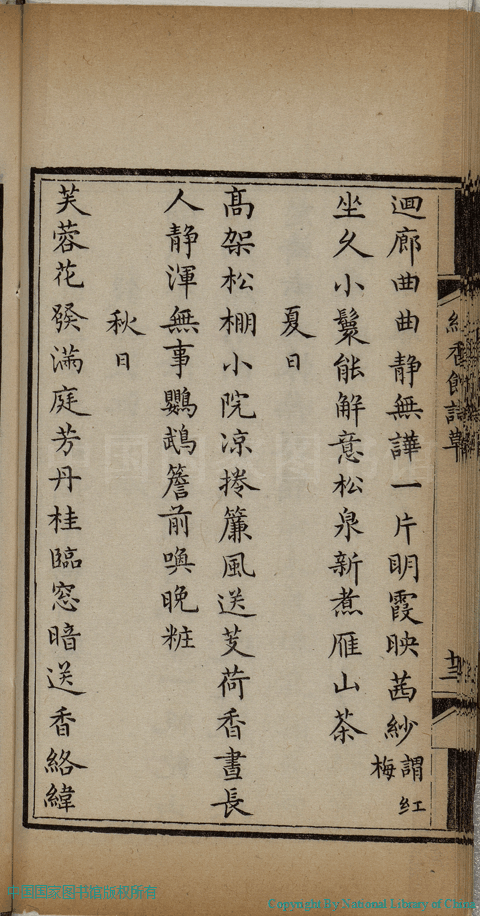 迴廊曲曲靜無譁一片明霞映茜紗謂紅梅
坐久小鬟能解意松泉新煮雁山茶
夏日
高架松棚小院凉捲簾風送芰荷香晝長
人靜渾無事鸚鵡簷前喚晚粧
秋日
芙蓉花發滿庭芳丹桂臨窓暗送香絡緯
十三
中国国家图书馆版权所有
Copyright By National Library of China